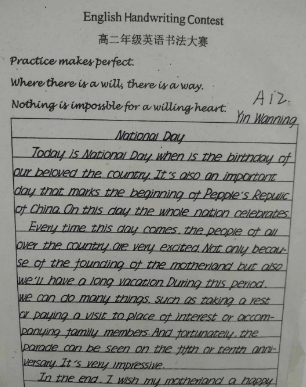 English Handwriting Contest
高二年级英语书法大赛
Practice makes perfect.
Where there is a will, there is a way.
Nothing is impossble for a willing heart.
A12
Yin Wanning
National Day
Today is National Day when is the birthday of
our beloved the country. It's also an important
day that marks the beginning of Pepple's Repulic
of China. On this day the whole nation celebrates.
Every time this day comes, the people of all
over the country are very excited. Not only becau-
se of the founding of the motherland but also
we'll have a long vacation. During this period,
we can do many things, such as taking a rest
or paying a visit to place of interest or accom-
panying family members. And fortunately, the
parade can be seen on the fifth or tenth anni-
versary. It's very impressive.
In the end, I wish my motherland a happy